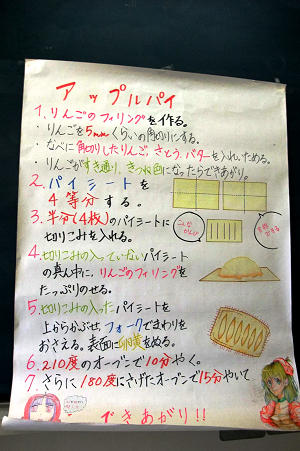 アップルパイ
1.りんごのフィリングを作る。
・りんごを5mmくらいの角切りにする。
・なべに角切りしたりんご、さとう、バターを入れ、ためる。
・りんごがすき通り、きつね色になったらできあがり。
2.パイシートを
4等分する。
3.半分(4枚)のパイシートに
切りこみを入れる。
4.切りこみの入っていないパイシート
の真ん中に、りんごのフィリングを
たっぷりのせる。
5.切りこみの入ったパイシートを
上からかぶせ、フォークでまわりを
おさえる。表面に卵黄をぬる。
6.210度のオーブンで10分やく。
7.さらに180度にさげたオーブンで15分やいて
できあがり!!